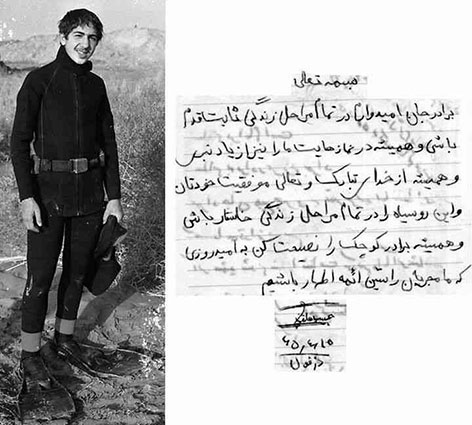 بسمه تعالی
برادر جان امیدوارم در تمام مراحل زندگی ثابت قدم
باشی و همیشه در نمازهایت ما را نیز از یاد نبری
و همیشه از خدای تبارک و تعالی موفقیت خودتان
و این روسیاه را در تمام مراحل زندگی خواستار باشی
و همیشه برادر کوچک را نصیحت کن به امید روزی
که ما مجریان راستین ائمه اطهار باشیم
دزفول